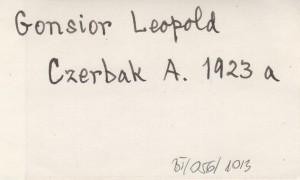 Gonsior Leopold
Czerbak A. 1923 a
BI/056/1013